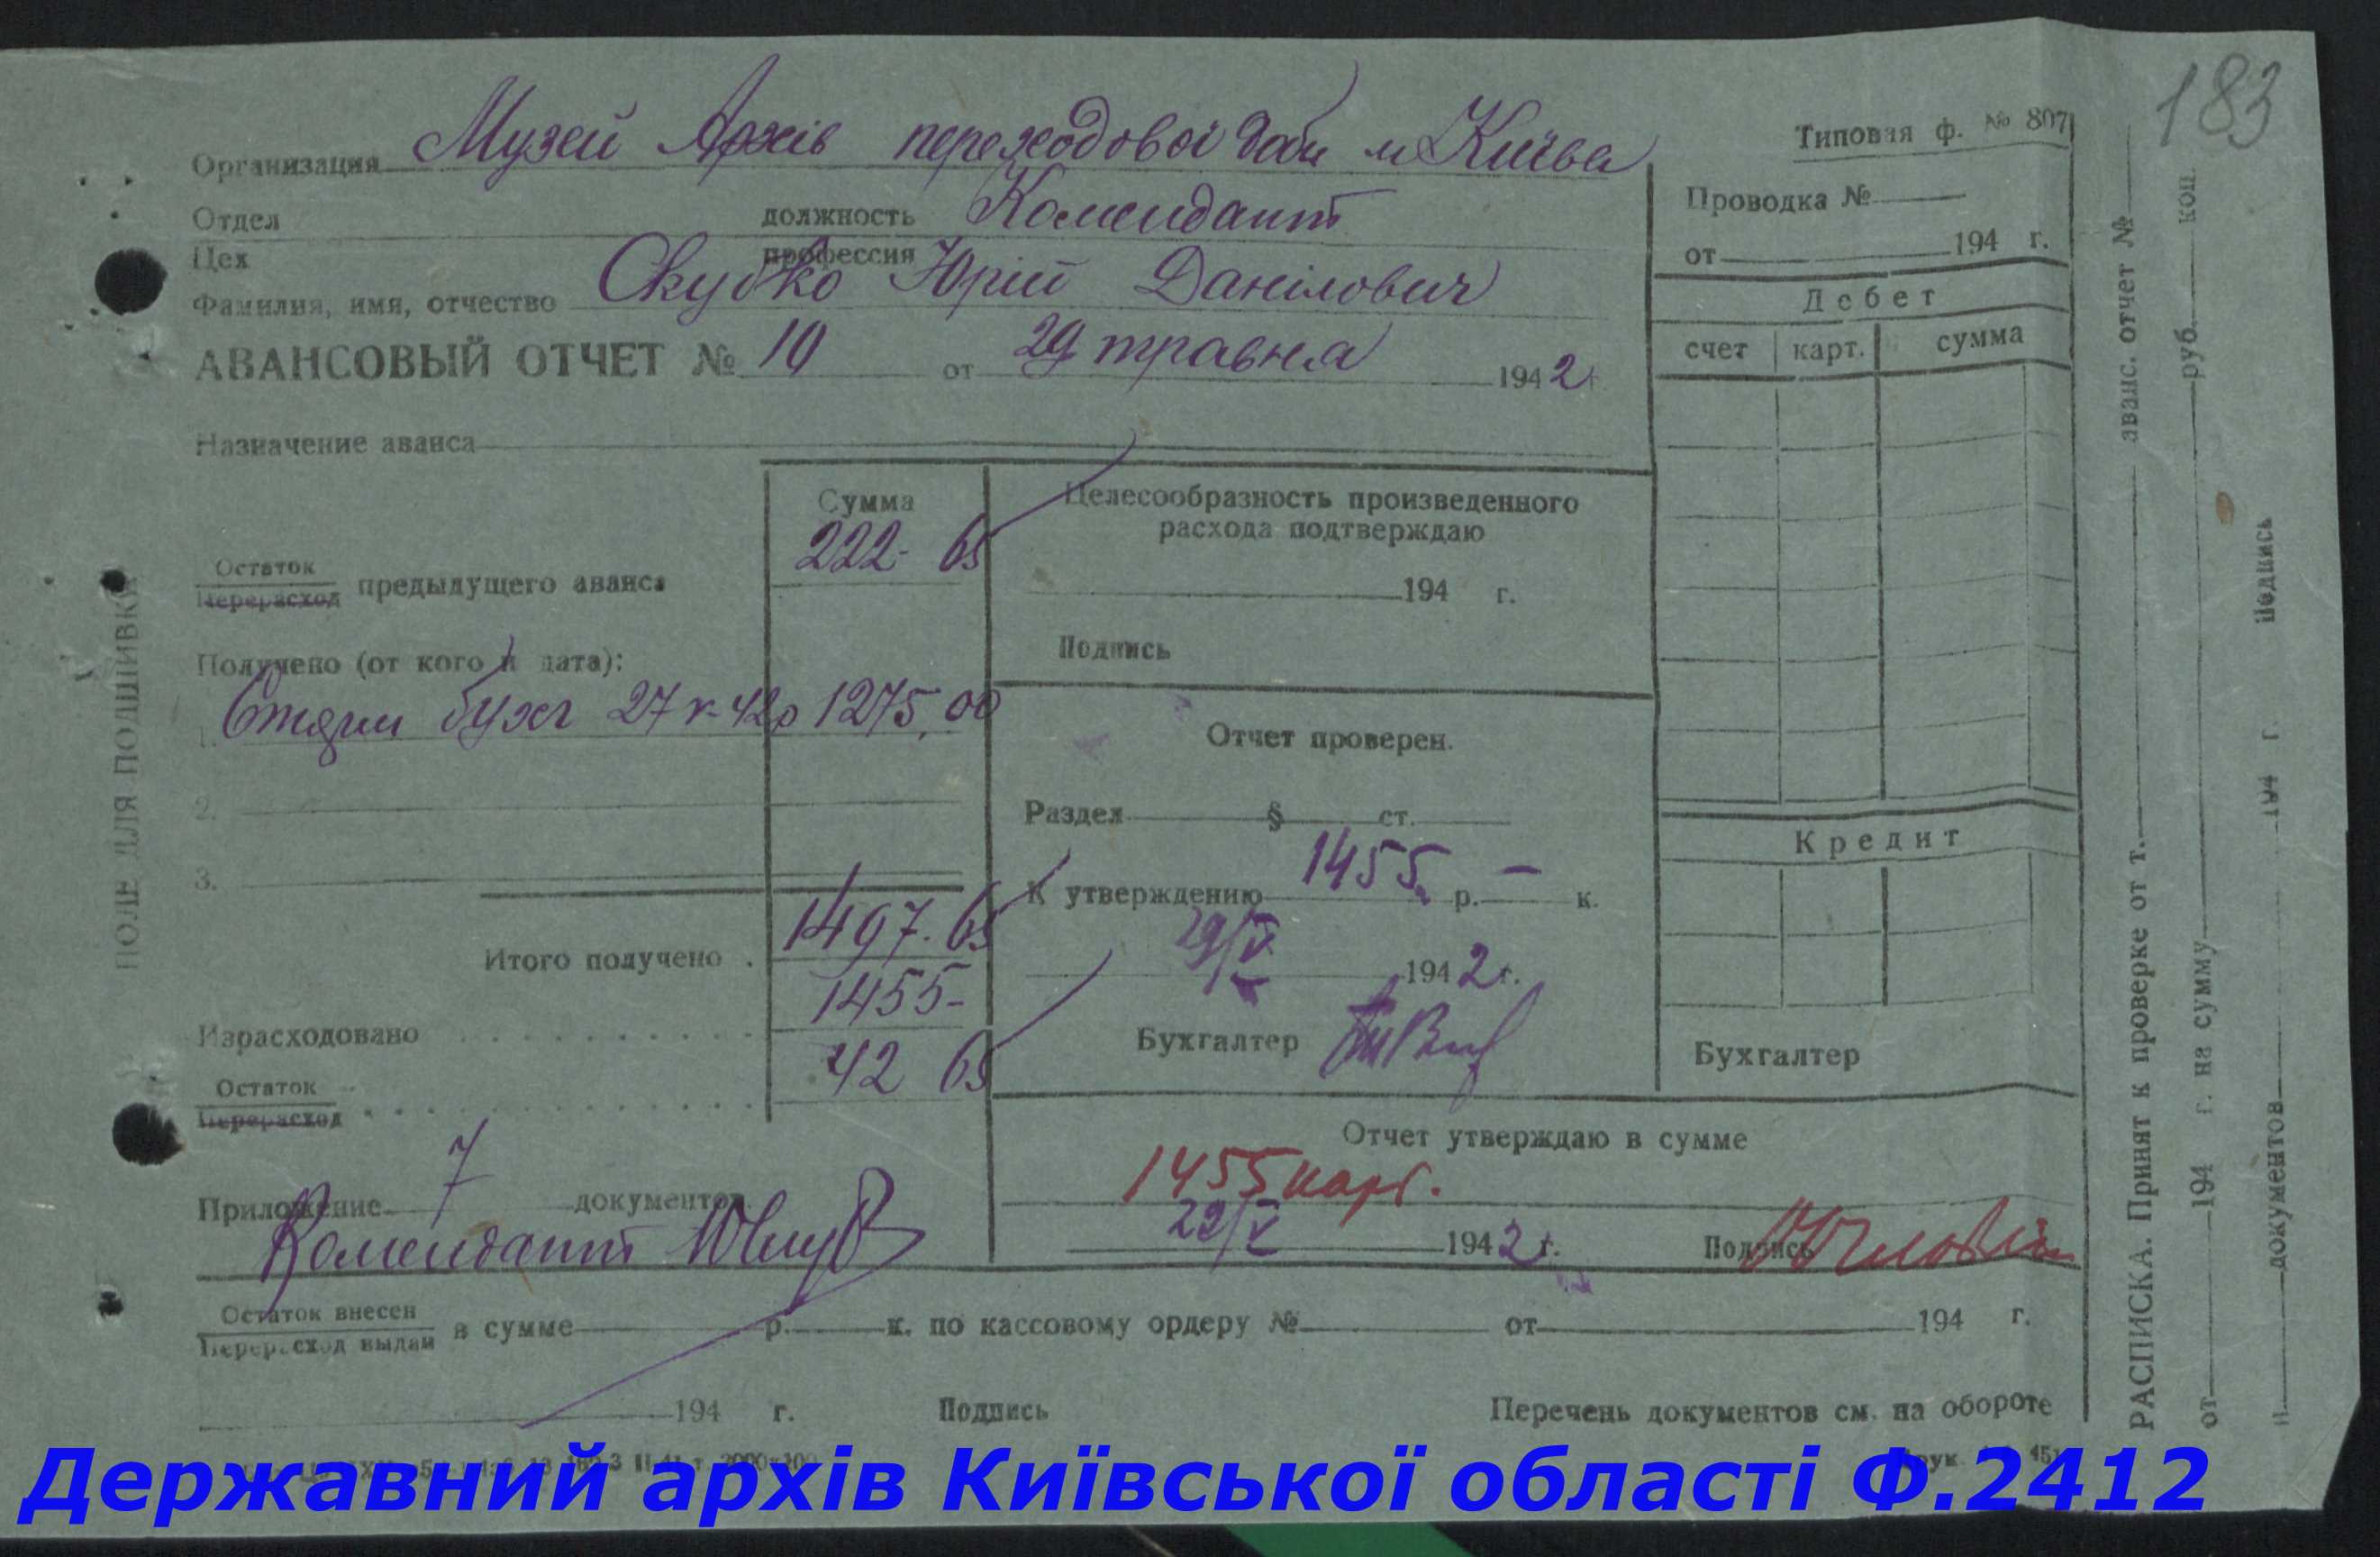 183
Типовая ф. № 807
Организация Музей Архів переходової доби м Київа
Отдел должность Комендант
Цех профессия
Фамилия, имя, отчество Скубко Юрій Данілович
АВАНСОВЫЙ ОТЧЕТ № 10 от 29 травня 1942 г.
Назначение аванса
Проводка №
от 194 г.
Дебет
счет карт. сумма
Сумма
Остаток
Перерасход предыдущего аванса 222- 65
Получено (от кого и дата):
1. бухг 27 42р 1275,00
2.
3.
Итого получено . 1497.65
Израсходовано 1455-
Остаток
Перерасход 42 65
Приложение 7 документов
Комендант
Целесообразность произведенного
расхода подтверждаю
194 г.
Подпись
Отчет проверен.
Раздел § ст.
К утверждению 1455 р. — к.
29/V 1942 г.
Бухгалтер
Кредит
Бухгалтер
Отчет утверждаю в сумме
1455 карб.
29/V 1942 г. Подпись
Остаток внесен
Перерасход выдан в сумме р. к. по кассовому ордеру № от 194 г.
194 г. Подпись Перечень документов см. на обороте
ПОЛЕ ДЛЯ ПОДШИВКИ
РАСПИСКА. Принят к проверке от т. аванс. отчет №
от 194 г. на сумму руб. коп.
и документов 194 г. Подпись
Державний архів Київської області Ф.2412